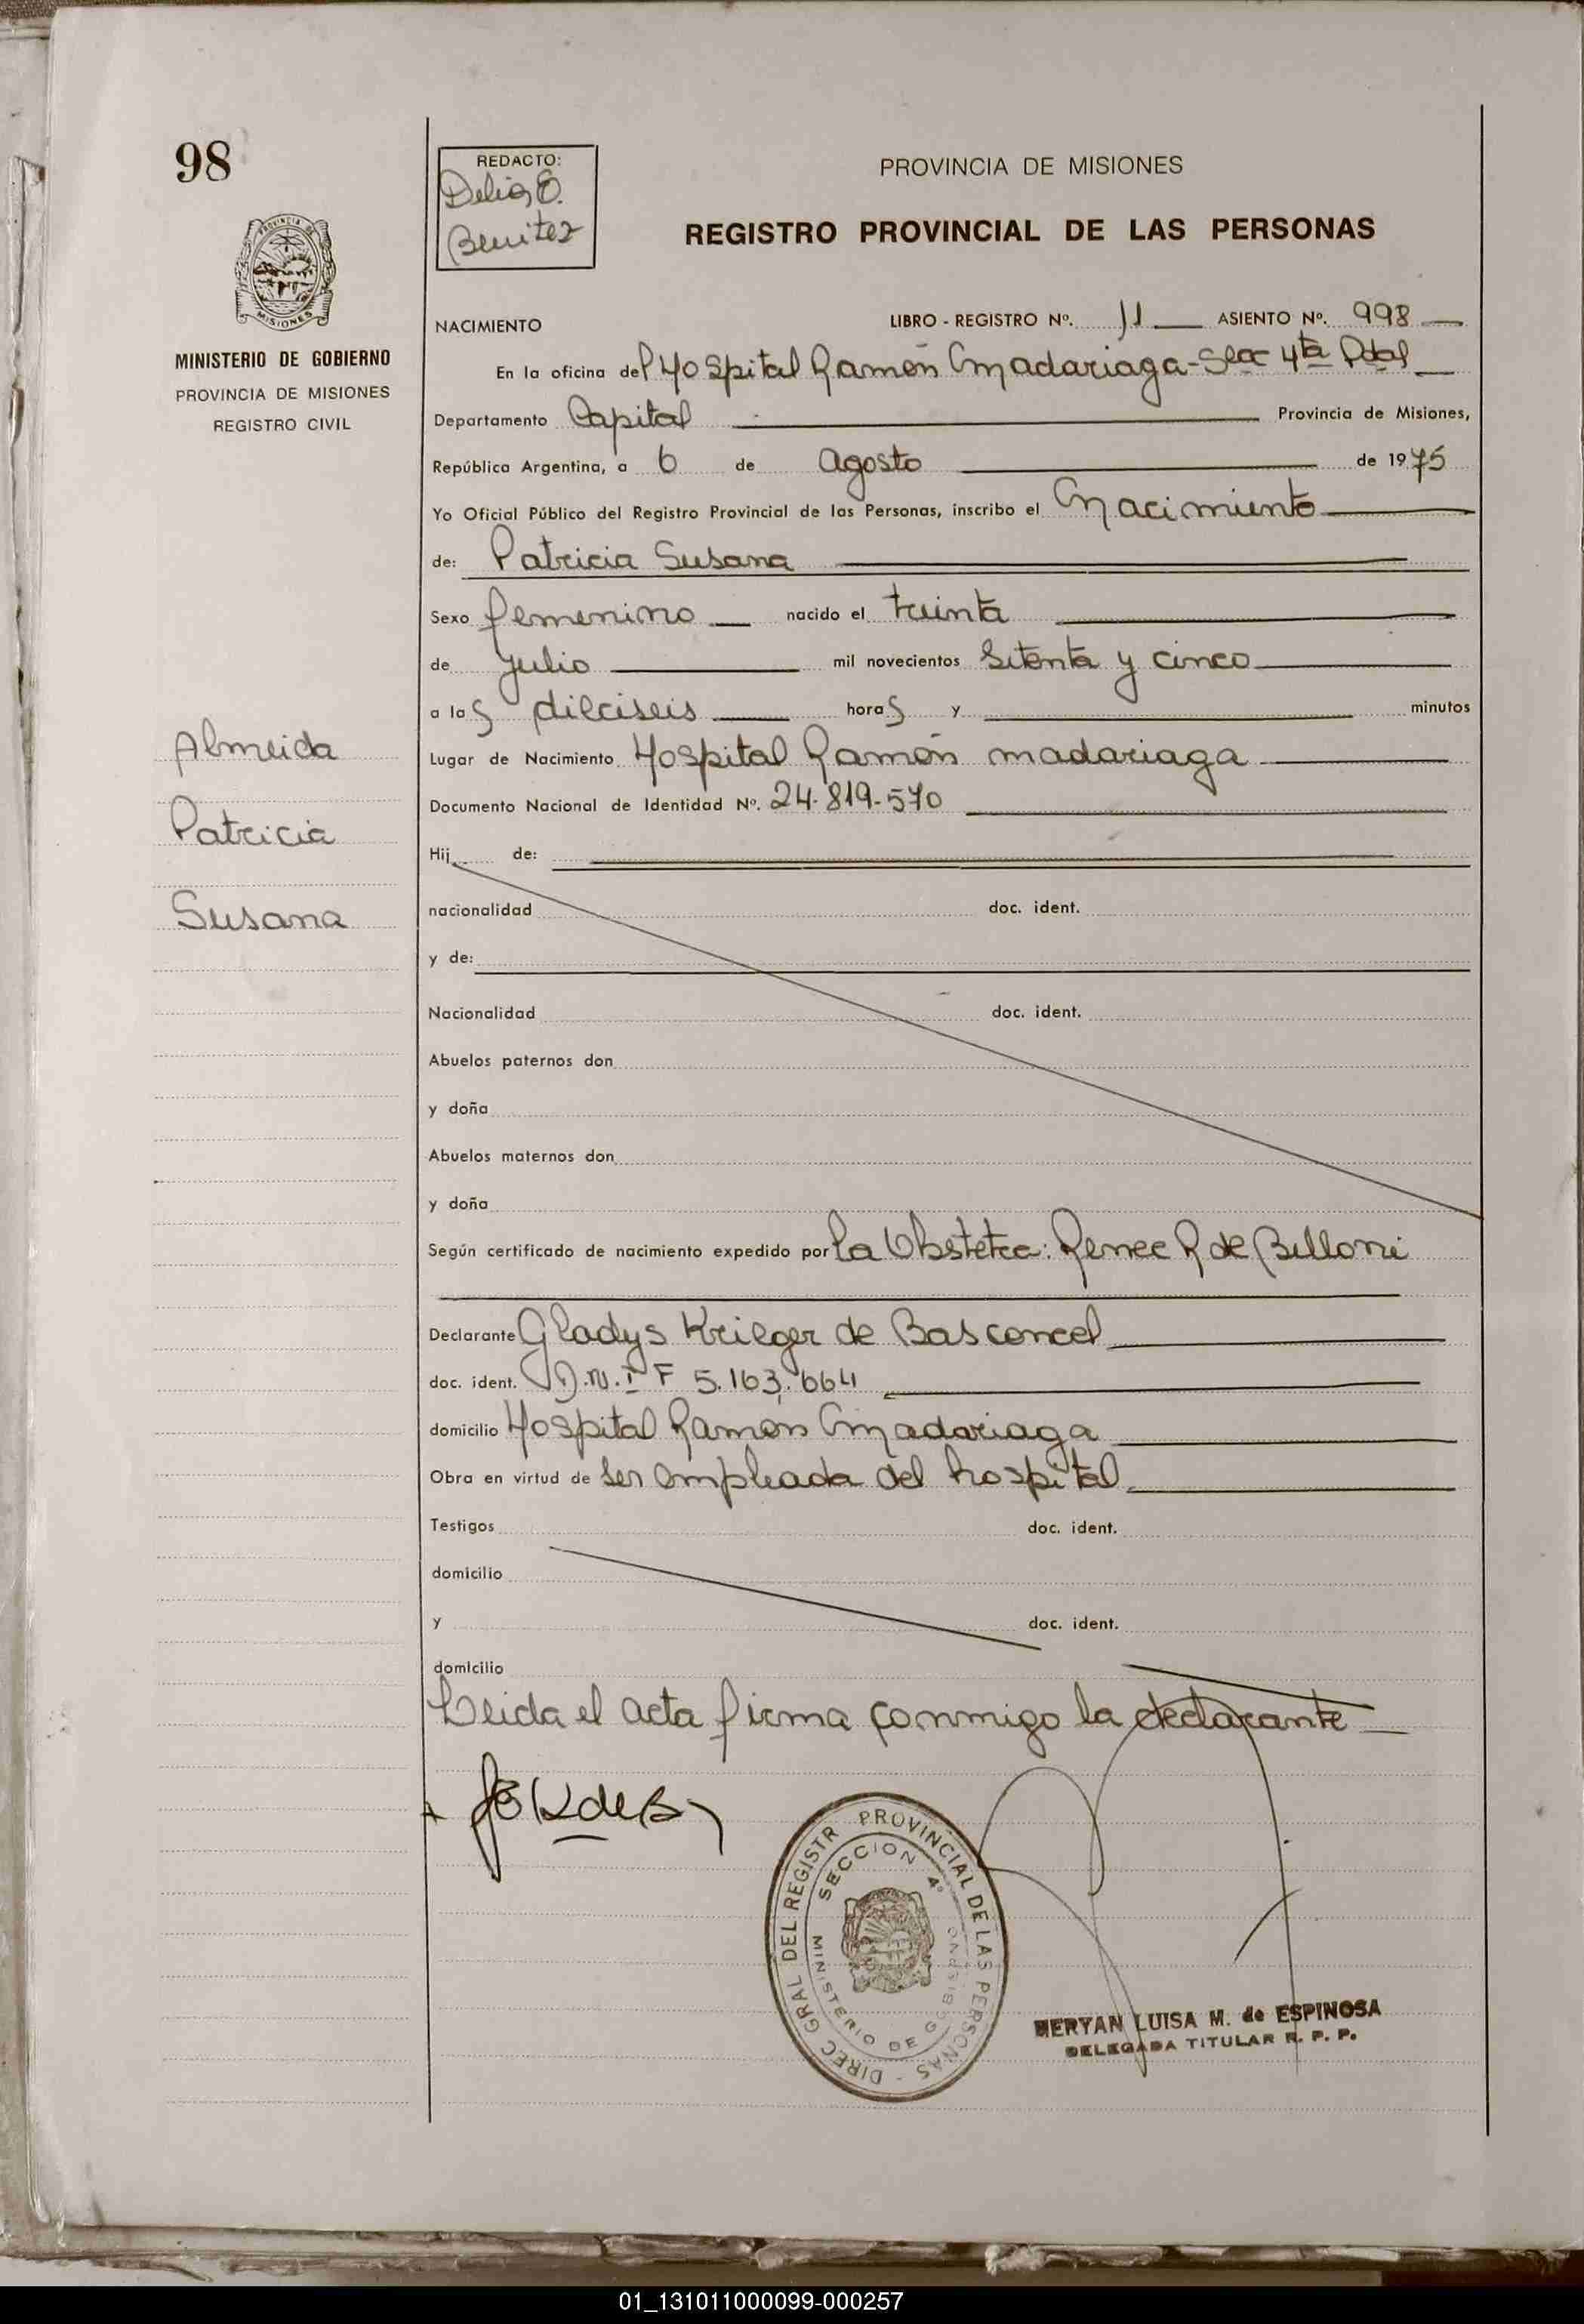 98
REDACTO:
Delia E.
Benitez
PROVINCIA DE MISIONES
REGISTRO PROVINCIAL DE LAS PERSONAS
PROVINCIA DE
MISIONES
MINISTERIO DE GOBIERNO
PROVINCIA DE MISIONES
REGISTRO CIVIL
NACIMIENTO LIBRO - REGISTRO Nº. 11 ASIENTO Nº. 998
En la oficina del Hospital Ramón Madariaga - Secc 4ta Pdas
Departamento Capital Provincia de Misiones,
República Argentina, a 6 de Agosto de 1975
Yo Oficial Público del Registro Provincial de las Personas, inscribo el Nacimiento
de: Patricia Susana
Sexo femenino nacido el treinta
de Julio mil novecientos setenta y cinco
a las dieciseis horas y minutos
Lugar de Nacimiento Hospital Ramón Madariaga
Documento Nacional de Identidad Nº. 24.819-570
Almeida
Patricia
Susana
Hij de:
nacionalidad doc. ident.
y de:
Nacionalidad doc. ident.
Abuelos paternos don
y doña
Abuelos maternos don
y doña
Según certificado de nacimiento expedido por la Obstetra: Renee R de Billoni
Declarante Gladys Krieger de Basconcel
doc. ident. D.N.I F 5.163.664
domicilio Hospital Ramón Madariaga
Obra en virtud de ser empleada del hospital
Testigos doc. ident.
domicilio
y doc. ident.
domicilio
Leida el acta firma conmigo la declarante
DIREC GRAL DEL REGISTR PROVINCIAL DE LAS PERSONAS -
SECCION 4º
MINISTERIO DE GOBIERNO
MERYAN LUISA M. de ESPINOSA
DELEGADA TITULAR R. P. P.
01_131011000099-000257